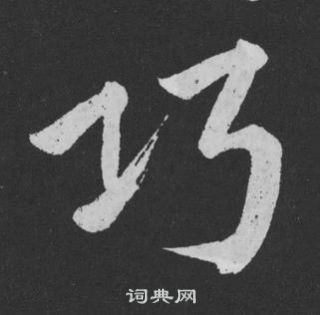 巧
词典网